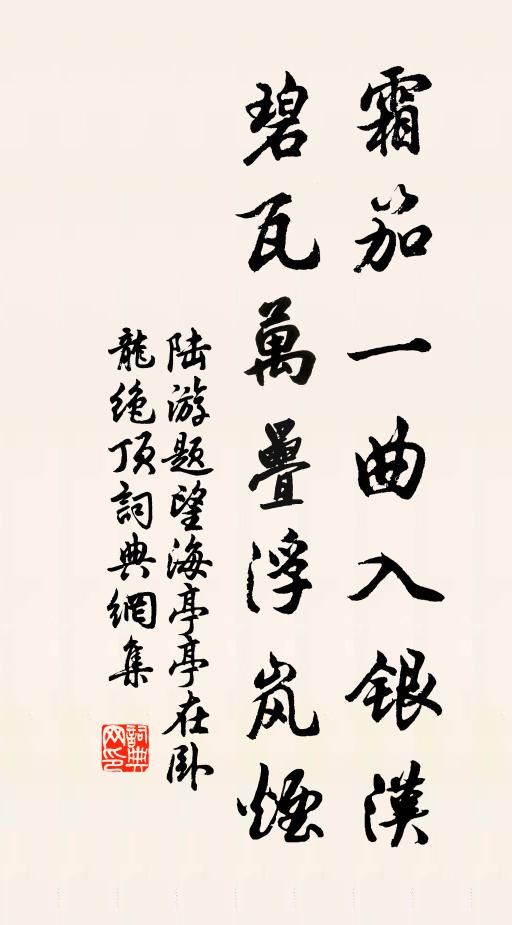 霜笳一曲入銀漢
碧瓦萬疊浮岚煙
陆游题望海亭亭在卧
龍绝顶詞典網集
詞典网印